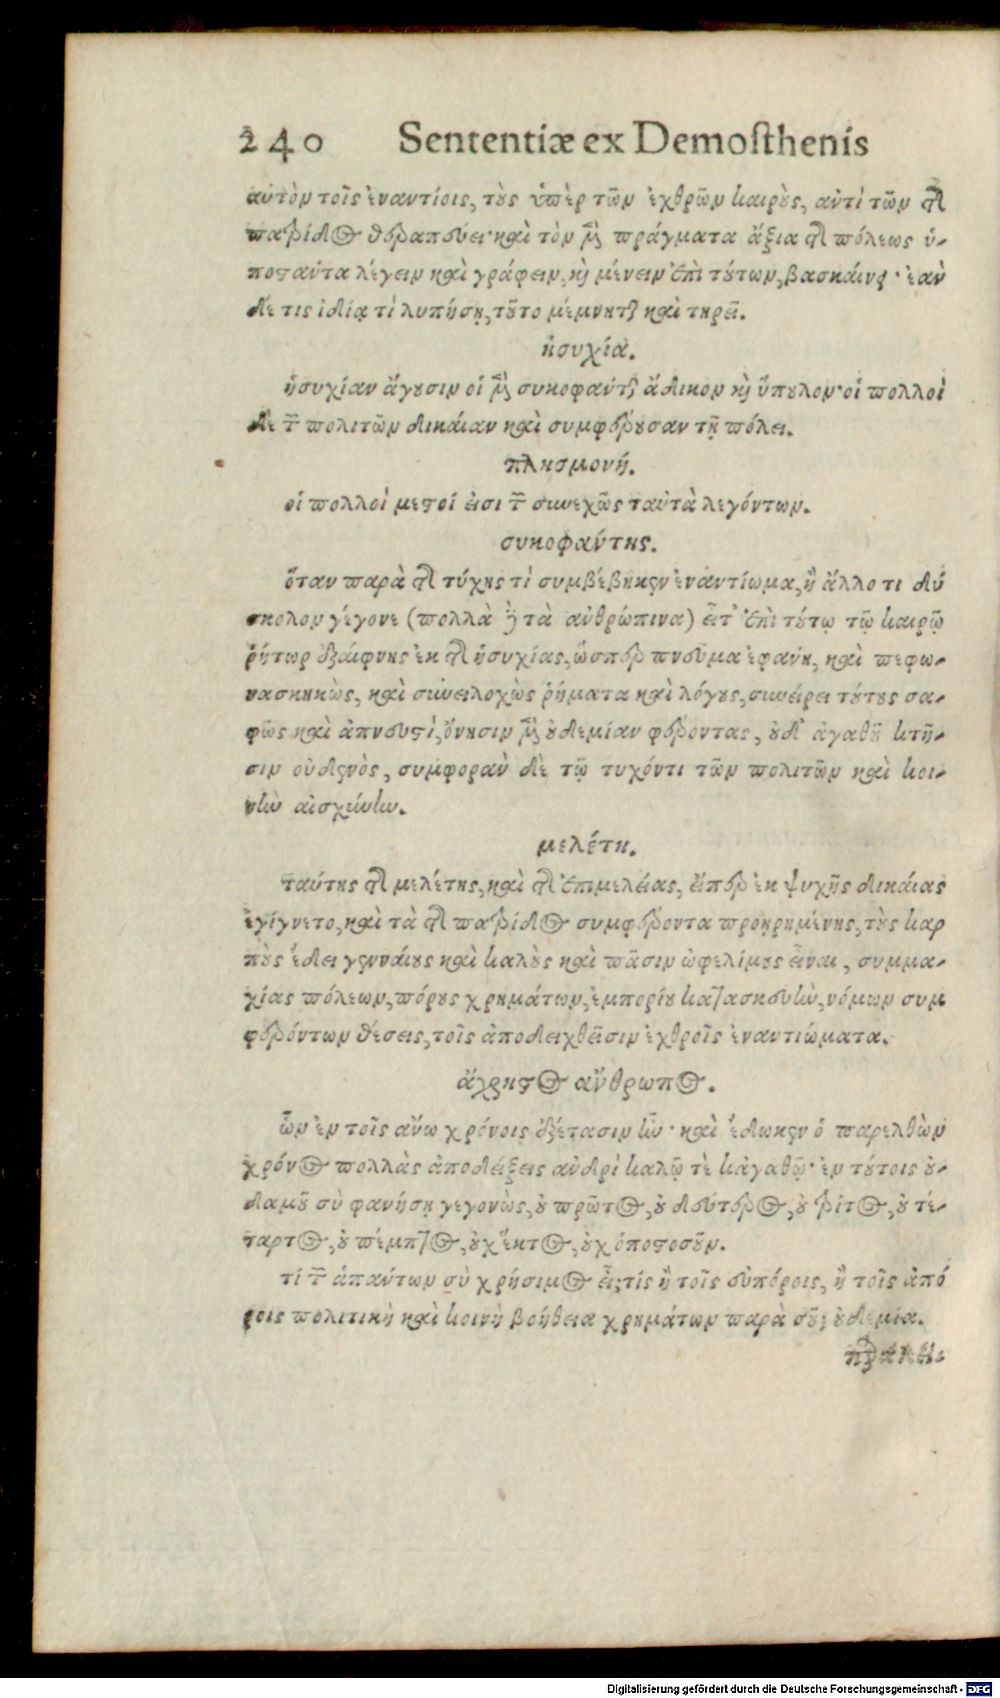 240 Sententiæ ex Demosthenis
αὑτὸν τοῖς ἐναντίοις, τοὺς ὑπὲρ τῶν ἐχθρῶν καιροὺς, ἀντὶ τῶν τῆς
πατρίδος θεραπεύει· καὶ τὸν μὲν πράγματα ἄξια τῆς πόλεως ὑ-
ποστάντα λέγειν καὶ γράφειν, καὶ μένειν ἐπὶ τούτων, βασκαίνειν· ἐὰν
δέ τις ἰδίᾳ τὶ λυπήσῃ, τοῦτο μέμνηται καὶ τηρεῖ.
ἡσυχία.
ἡσυχίαν ἄγουσιν οἱ μὲν συκοφάνται ἄδικον καὶ ὕπουλον· οἱ πολλοὶ
δὲ τῶν πολιτῶν δικαίαν καὶ συμφέρουσαν τῇ πόλει.
πλησμονή.
οἱ πολλοὶ μεστοί εἰσι τῶν συνεχῶς ταὐτὰ λεγόντων.
συκοφάντης.
ὅταν παρὰ τῆς τύχης τὶ συμβέβηκεν ἐναντίωμα, ἢ ἄλλο τι δύ
σκολον γέγονε (πολλὰ δὲ τὰ ἀνθρώπινα) εἶτ' ἐπὶ τούτῳ τῷ καιρῷ
ῥήτωρ ἐξαίφνης ἐκ τῆς ἡσυχίας, ὥσπερ πνεῦμα ἐφάνη, καὶ πεφω-
νασκηκὼς, καὶ συνειλοχὼς ῥήματα καὶ λόγους, συνείρει τούτους σα-
φῶς καὶ ἀπνευστὶ, ὄνησιν μὲν οὐδεμίαν φέροντας, οὐδ' ἀγαθοῦ κτῆ-
σιν οὐδενὸς, συμφορὰν δὲ τῷ τυχόντι τῶν πολιτῶν καὶ κοι-
νὴν αἰσχύνην.
μελέτη.
ταύτης τῆς μελέτης, καὶ τῆς ἐπιμελείας, εἴπερ ἐκ ψυχῆς δικαίας
ἐγίγνετο, καὶ τὰ τῆς πατρίδος συμφέροντα προῃρημένης, τοὺς καρ
ποὺς ἔδει γενναίους καὶ καλοὺς καὶ πᾶσιν ὠφελίμους εἶναι, συμμα-
χίας πόλεων, πόρους χρημάτων, ἐμπορίου κατασκευὴν, νόμων συμ
φερόντων θέσεις, τοῖς ἀποδειχθεῖσιν ἐχθροῖς ἐναντιώματα.
ἄχρηστος ἄνθρωπος.
ὧν ἐν τοῖς ἄνω χρόνοις ἐξέτασιν ἦν· καὶ ἔδωκεν ὁ παρελθὼν
χρόνος πολλὰς ἀποδείξεις ἀνδρὶ καλῷ τὲ κἀγαθῷ· ἐν τούτοις οὐ-
δαμοῦ σὺ φανήσῃ γεγονὼς, οὐ πρῶτος, οὐ δεύτερος, οὐ τρίτος, οὐ τέ-
ταρτος, οὐ πέμπτος, οὐχ ἕκτος, οὐχ ὁποστοσοῦν.
τί τῶν ἁπάντων σὺ χρήσιμος εἶ; τίς ἢ τοῖς εὐπόροις, ἢ τοῖς ἀπό
ροις πολιτικὴ καὶ κοινὴ βοήθεια χρημάτων παρὰ σοῦ; οὐδεμία.
Digitalisierung gefördert durch die Deutsche Forschungsgemeinschaft - DFG